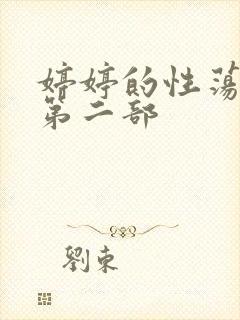 婷婷的性蕩
第二部
劉東